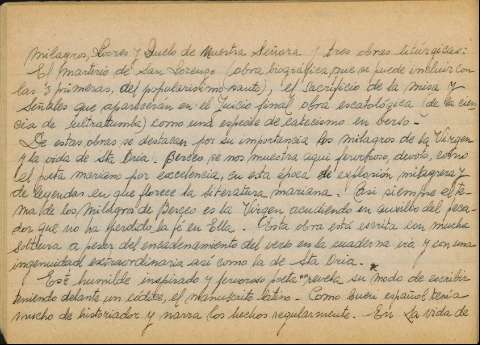 Milagros, Loores y Duelo de Nuestra Señora y tres obras litúrgicas:
El martirio de San Lorenzo (obra biográfica, que se puede incluir con
las 3 primeras, del popularismo santo), el Sacrificio de la misa y
Señales que aparecerán en el juicio final obra escatológica (de la cien-
cia de ultratumba) como una especie de catecismo en verso.-
De estas obras se destacan por su importancia los milagros de la Virgen
y la vida de Sta Oria. Berceo, se nos muestra aquí fervoroso, devoto, como
el poeta mariano por excelencia, en esta época de explosión milagrera y
de legendas en que florece la literatura mariana. Casi siempre el te-
ma de los Milagros de Berceo es la Virgen acudiendo en auxilio del peca-
dor que no ha perdido la fé en Ella. - Esta obra está escrita con mucha
soltura a pesar del encadenamiento del verso en la cuaderna vía y con una
ingenuidad extraordinaria así como la de Sta Oria.
Este humilde inspirado y fervoroso poeta revela su modo de escribir
teniendo delante un códice, el manuscrito latino. - Como buen español tenía
mucho de historiador y narra los hechos regularmente. - En la vida de